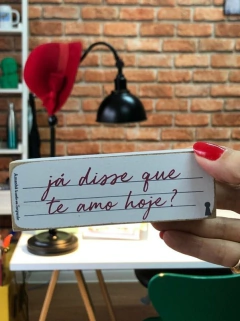 já disse que
te amo hoje?